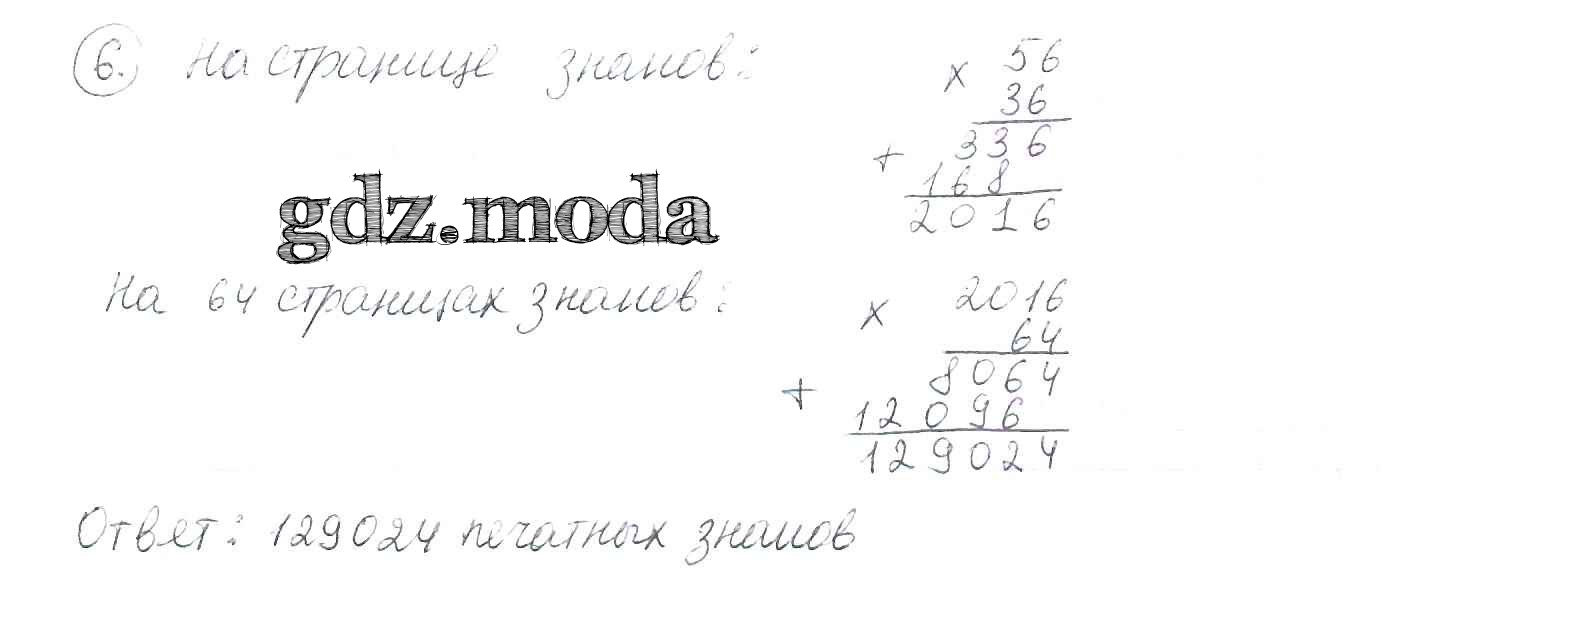 6. На странице знаков:
× 56
36
+ 336
168
2016
gdz.moda
На 64 страницах знаков:
× 2016
64
+ 8064
12096
129024
Ответ: 129024 печатных знаков